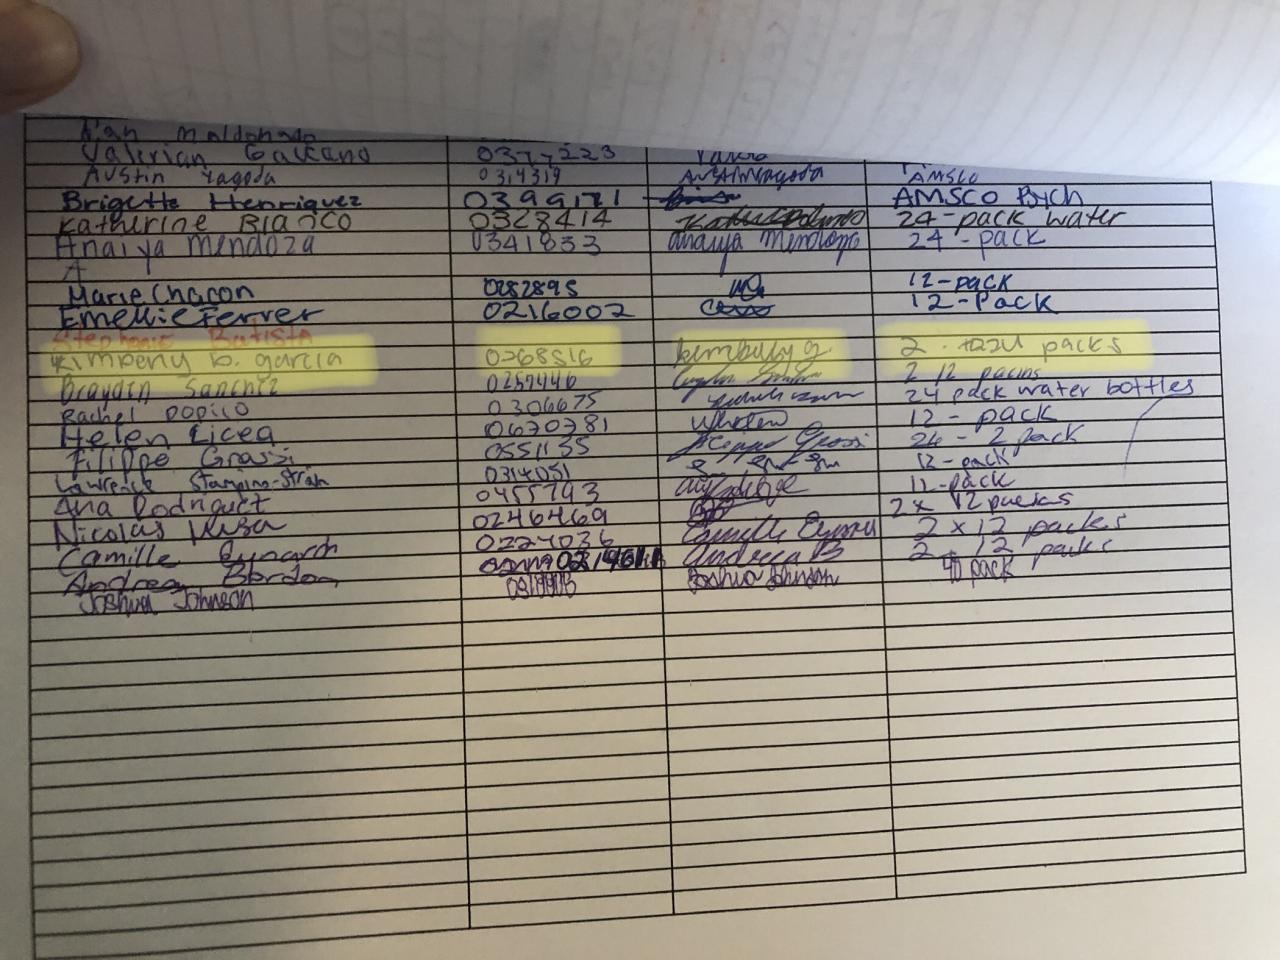 Maldonado
Valerian Galeano 0377223
Austin Yagoda 0314319 Austin Yagoda AMSCO
Brigette Henriquez 0399171 AMSCO Psych
Katherine Blanco 0328414 24-pack water
Anaiya Mendoza 0341833 anaiya Mendoza 24-pack
A
Marie Chacon 0282895 12-pack
Emellie Ferrer 0216002 12-Pack
Stephanie Batista
Kimberly b. garcia 0268516 kimberly g 2 packs
Brayden Sanchez 0257446 2 12 packs
Rachel Popilo 0306675 24 pack water bottles
Helen Licea 0670781 12-pack
Filippo Grassi 0551135 Filippo Grassi 24-2 pack
Lawrence 0314051 12-pack
Ana Rodriguez 0455793 12-pack
Nicolas 0246469 2 x 12 packs
Camille Eymard 0224036 Camille Eymard 2 x 12 packs
Andrea Bordon Andrea B 2 12 packs
Joshua Johnson Joshua Johnson 40 pack